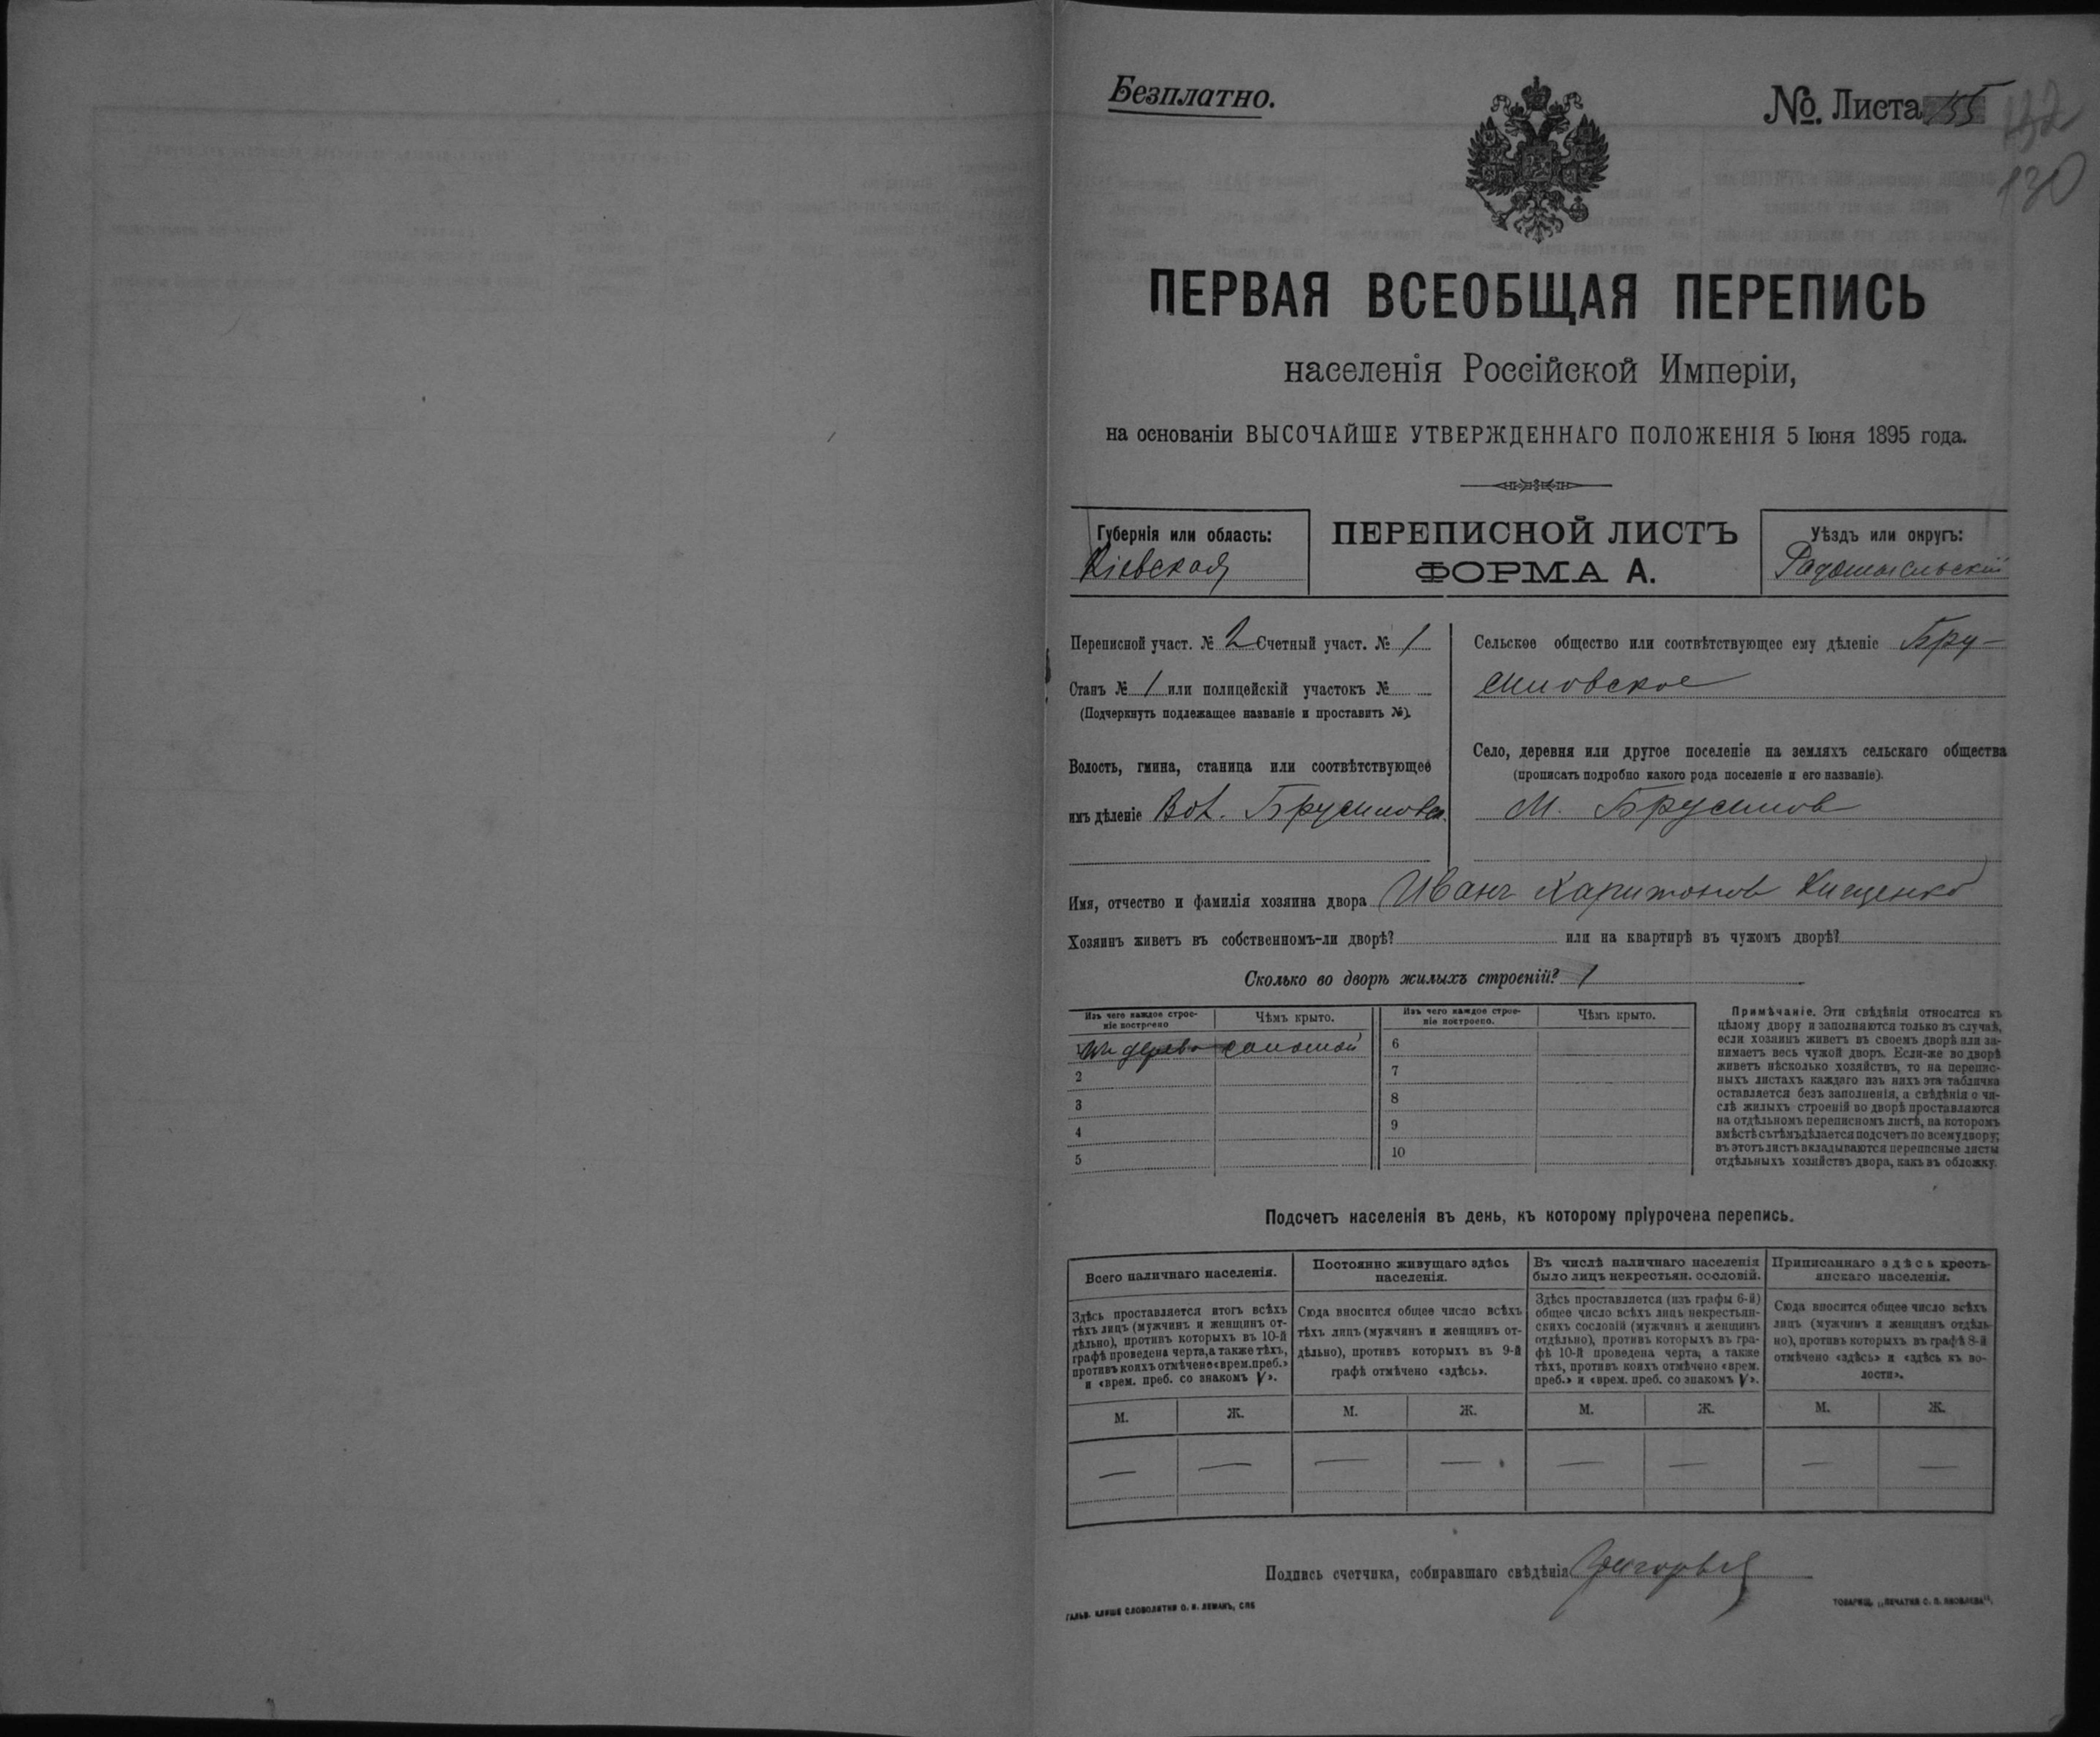 Безплатно.
№ Листа 155
132
130
ПЕРВАЯ ВСЕОБЩАЯ ПЕРЕПИСЬ
населенія Россійской Имперіи,
на основаніи ВЫСОЧАЙШЕ УТВЕРЖДЕННАГО ПОЛОЖЕНІЯ 5 Іюня 1895 года.
Губернія или область:
Кіевская
ПЕРЕПИСНОЙ ЛИСТЪ
ФОРМА А.
Уѣздъ или округъ:
Радомысльскій
Переписной участ. № 2 Счетный участ. № 1
Станъ № 1 или полицейскій участокъ №
(Подчеркнуть подлежащее названіе и проставить №).
Волость, гмина, станица или соотвѣтствующее
имъ дѣленіе Вол. Брусиловск.
Сельское общество или соотвѣтствующее ему дѣленіе Бру-
силовское
Село, деревня или другое поселеніе на земляхъ сельскаго общества
(прописать подробно какого рода поселеніе и его названіе).
М. Брусилов
Имя, отчество и фамилія хозяина двора Иванъ Харитонов Кищенко
Хозяинъ живетъ въ собственномъ-ли дворѣ? или на квартирѣ въ чужомъ дворѣ?
Сколько во дворѣ жилыхъ строеній? 1
Изъ чего каждое строе-
ніе построено
Чѣмъ крыто.
Изъ чего каждое строе-
ніе построено.
Чѣмъ крыто.
1 Изъ дерева соломой
2
3
4
5
6
7
8
9
10
Примѣчаніе. Эти свѣдѣнія относятся къ
цѣлому двору и заполняются только въ случаѣ,
если хозяинъ живетъ въ своемъ дворѣ или за-
нимаетъ весь чужой дворъ. Если-же во дворѣ
живетъ нѣсколько хозяйствъ, то на перепис-
ныхъ листахъ каждаго изъ нихъ эта табличка
оставляется безъ заполненія, а свѣдѣнія о чи-
слѣ жилыхъ строеній во дворѣ проставляются
на отдѣльномъ переписномъ листѣ, на которомъ
вмѣстѣ съ тѣмъ дѣлается подсчетъ по всему двору;
въ этотъ листъ вкладываются переписные листы
отдѣльныхъ хозяйствъ двора, какъ въ обложку.
Подсчетъ населенія въ день, къ которому пріурочена перепись.
Всего наличнаго населенія.
Здѣсь проставляется итогъ всѣхъ
тѣхъ лицъ (мужчинъ и женщинъ от-
дѣльно), противъ которыхъ въ 10-й
графѣ проведена черта, а также тѣхъ,
противъ коихъ отмѣчено «врем. преб.»
и «врем. преб. со знакомъ V».
Постоянно живущаго здѣсь
населенія.
Сюда вносится общее число всѣхъ
тѣхъ лицъ (мужчинъ и женщинъ от-
дѣльно), противъ которыхъ въ 9-й
графѣ отмѣчено «здѣсь».
Въ числѣ наличнаго населенія
было лицъ некрестьян. сословій.
Здѣсь проставляется (изъ графы 6-й)
общее число всѣхъ лицъ некрестьян-
скихъ сословій (мужчинъ и женщинъ
отдѣльно), противъ которыхъ въ гра-
фѣ 10-й проведена черта, а также
тѣхъ, противъ коихъ отмѣчено «врем.
преб.» и «врем. преб. со знакомъ V».
Приписаннаго здѣсь кресть-
янскаго населенія.
Сюда вносится общее число всѣхъ
лицъ (мужчинъ и женщинъ отдѣль-
но), противъ которыхъ въ графѣ 8-й
отмѣчено «здѣсь» и «здѣсь къ во-
лости».
М. Ж. М. Ж. М. Ж. М. Ж.
— — — — — — — —
Подпись счетчика, собиравшаго свѣдѣнія
ГАЛЬВ. КЛИШЕ СЛОВОЛИТНИ О. И. ЛЕМАНЪ, СПБ
ТОВАРИЩ. „ПЕЧАТНЯ С. П. ЯКОВЛЕВА".